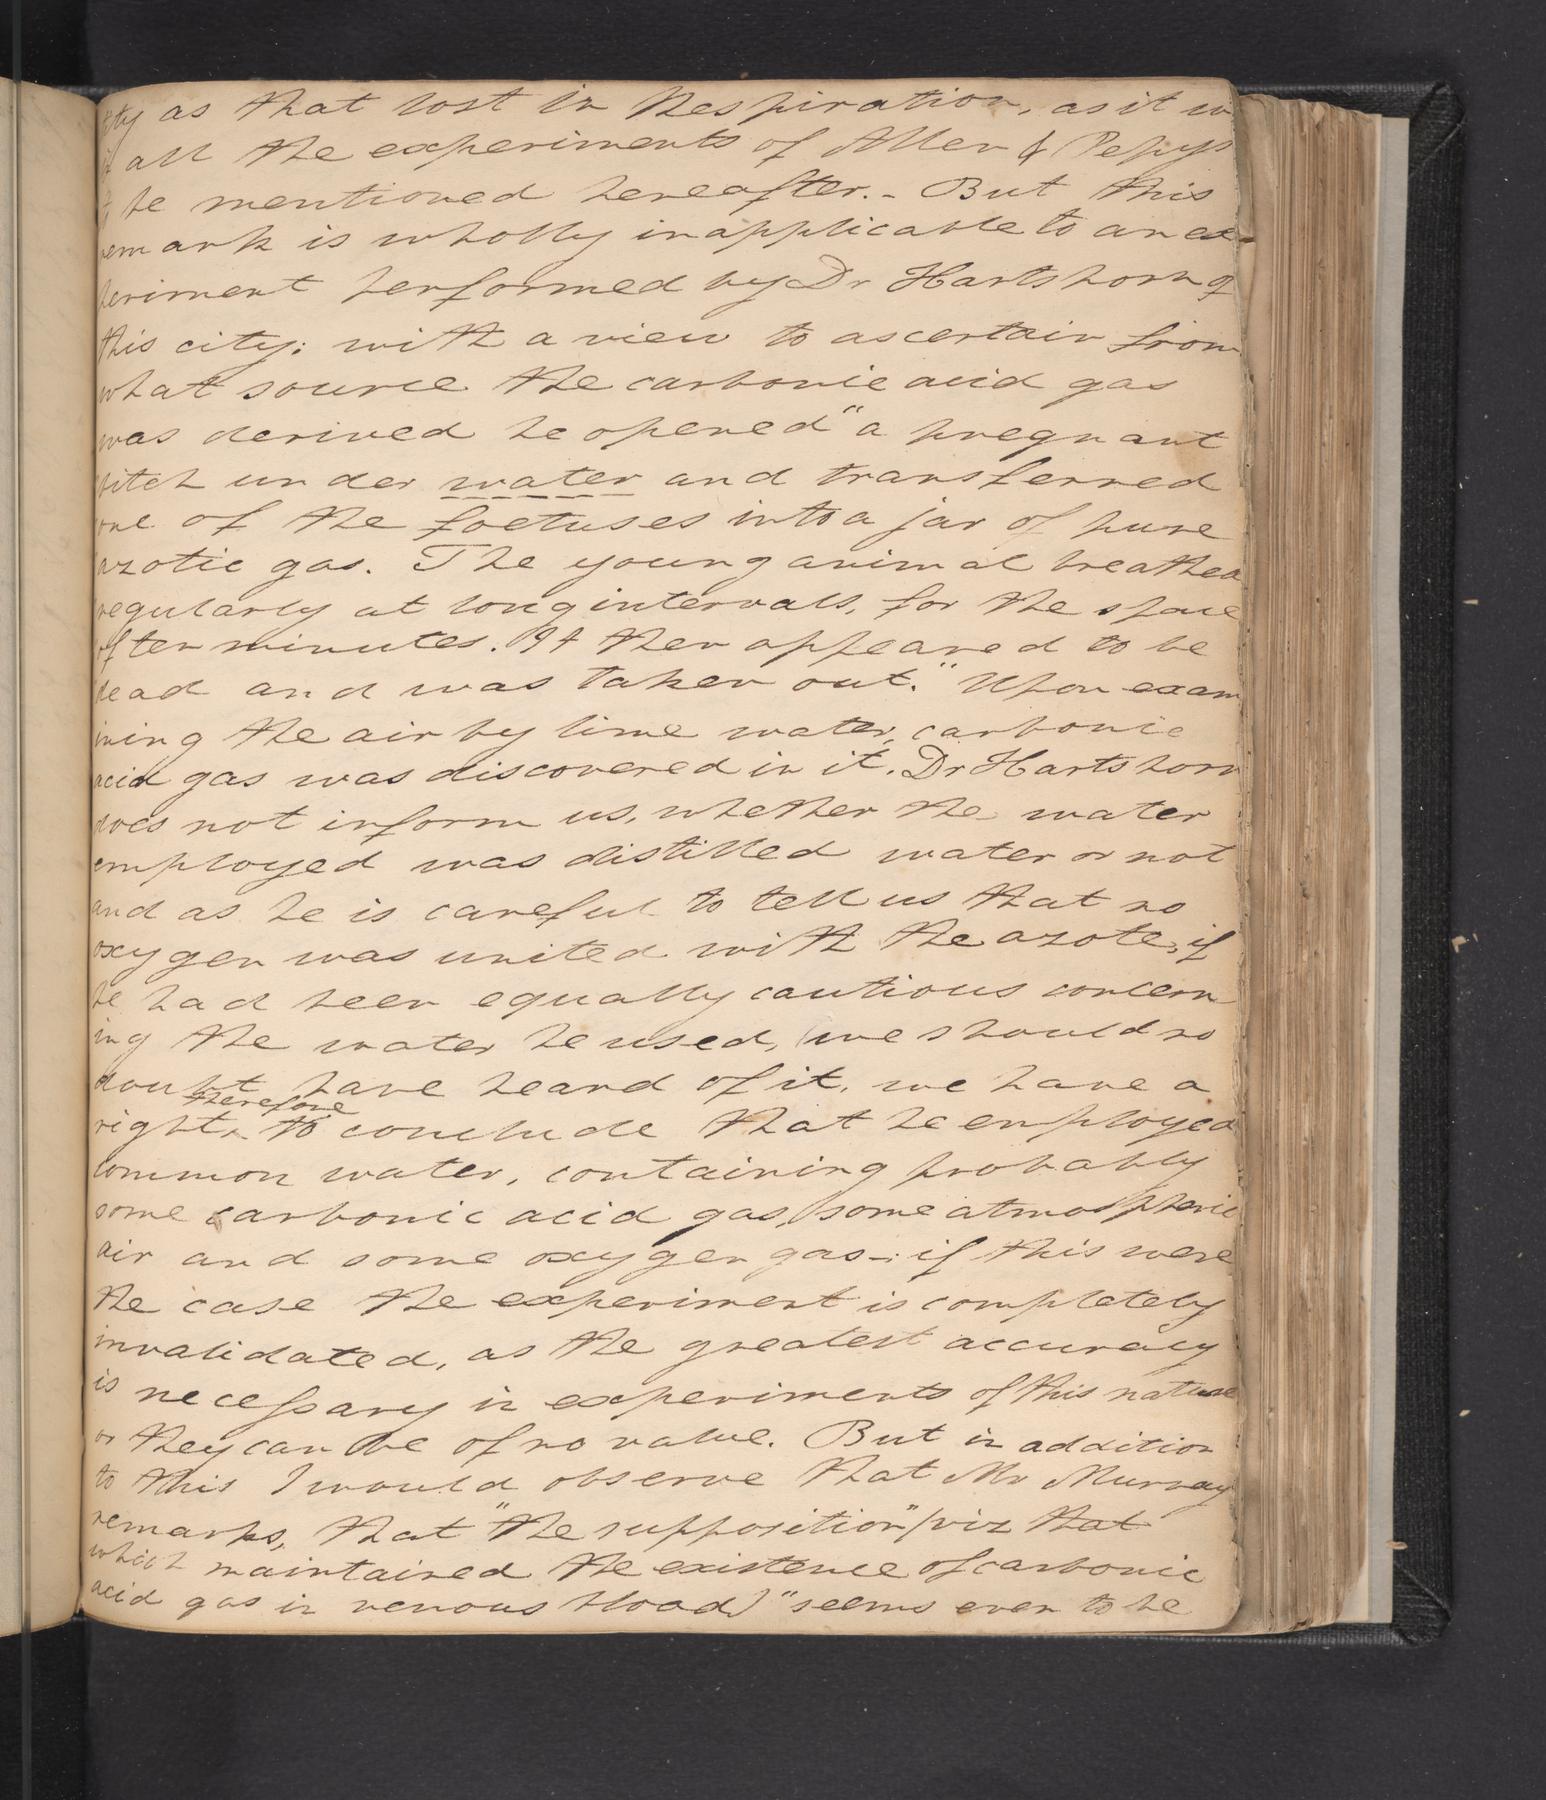 ity as that lost in Respiration, as it w
all the experiments of Allen & Pepys
to be mentioned hereafter.- But this
remark is wholly inapplicable to an ex-
periment performed by Dr Hartshorn of
this city; with a view to ascertain from
what source the carbonic acid gas
was derived he opened "a pregnant
bitch under water and transferred
one of the foetuses into a jar of pure
azotic gas. The young animal breathed
regularly at long intervals, for the space
of ten minutes. It then appeared to be
dead and was taken out." Upon exam
ining the air by lime water, carbonic
acid gas was discovered in it. Dr Hartshorn
does not inform us, whether the water
employed was distilled water or not
and as he is careful to tell us that no
oxygen was united with the azote, if
he had been equally cautious concern
ing the water he used, we should no
doubt have heard of it, we have a
right therefore to conclude that he employed
common water, containing probably
some carbonic acid gas, some atmospheric
air and some oxygen gas-; if this were
the case the experiment is completely
invalidated, as the greatest accuracy
is necessary in experiments of this nature
or they can be of no value. But in addition
to this I would observe that Mr Murray
remarks, that "the supposition" (viz that
which maintained the existence of carbonic
acid gas in venous blood) "seems even to be